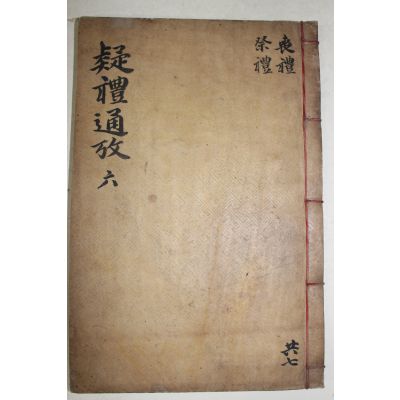 喪禮
祭禮
疑禮通攷 六
共七